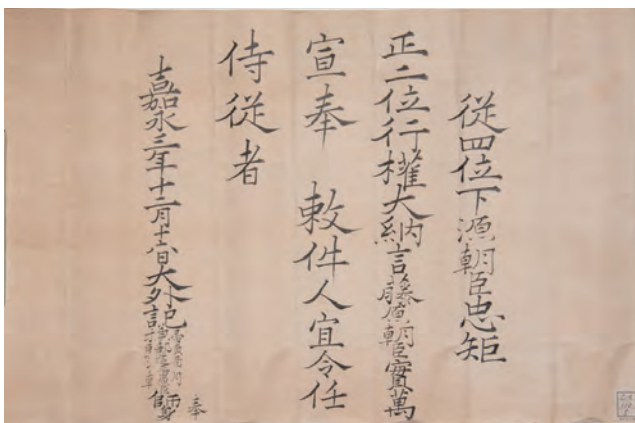 從四位下源朝臣忠矩
正二位行權大納言藤原朝臣實萬
宣奉　敕件人宜令任
侍從者
嘉永三年十二月十六日大外記
師身　奉